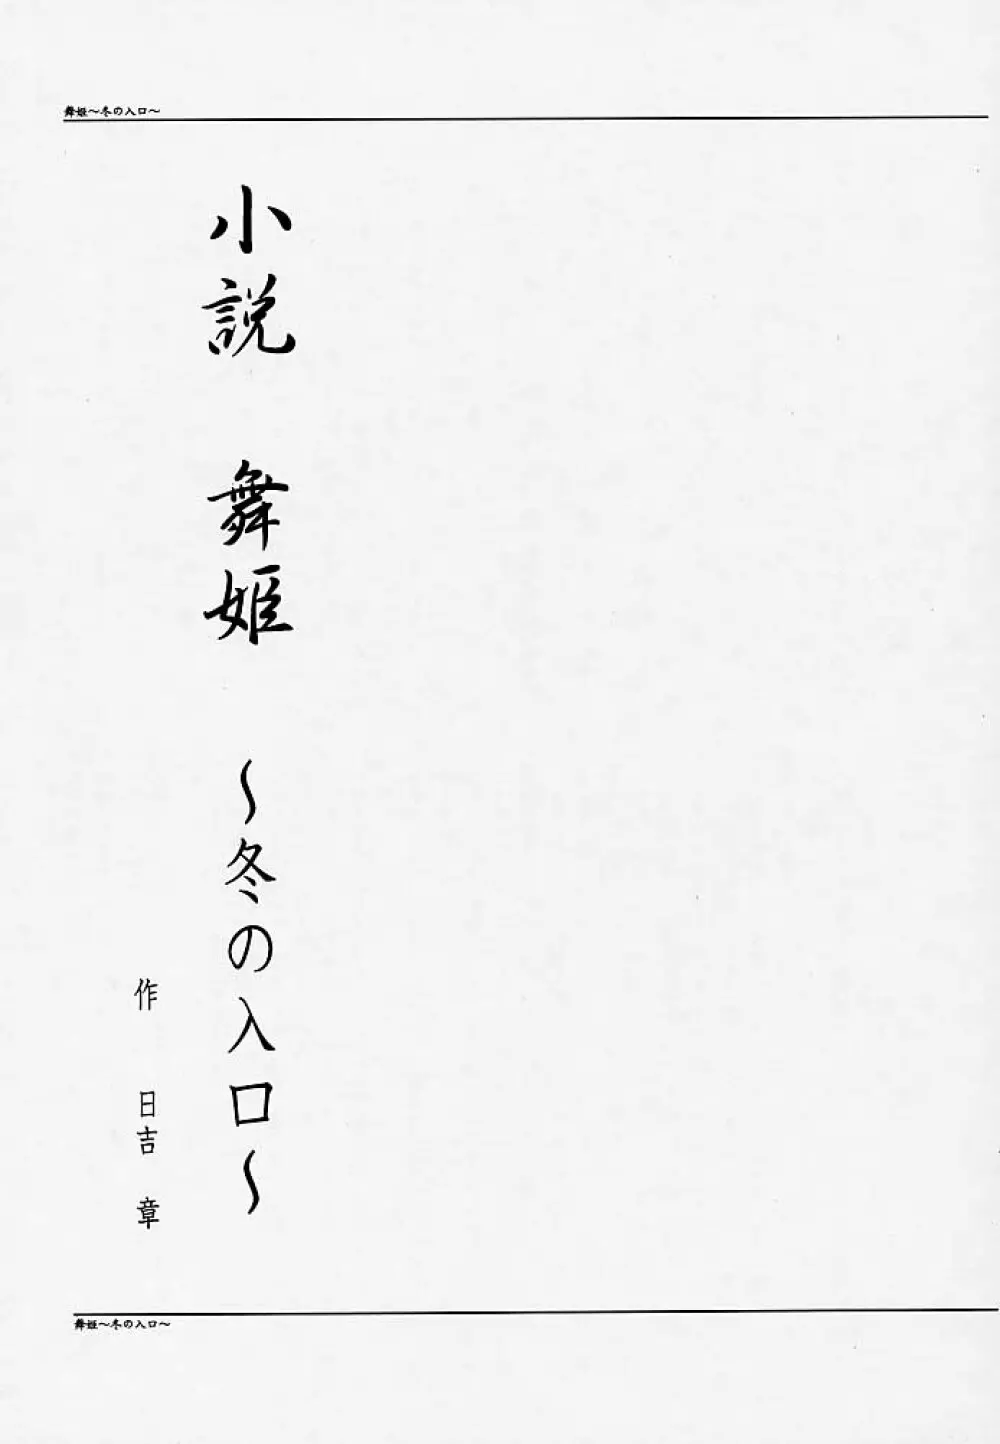 舞姫〜冬の入口〜
小説　舞姫　〜冬の入口〜
作　日吉　章
舞姫〜冬の入口〜